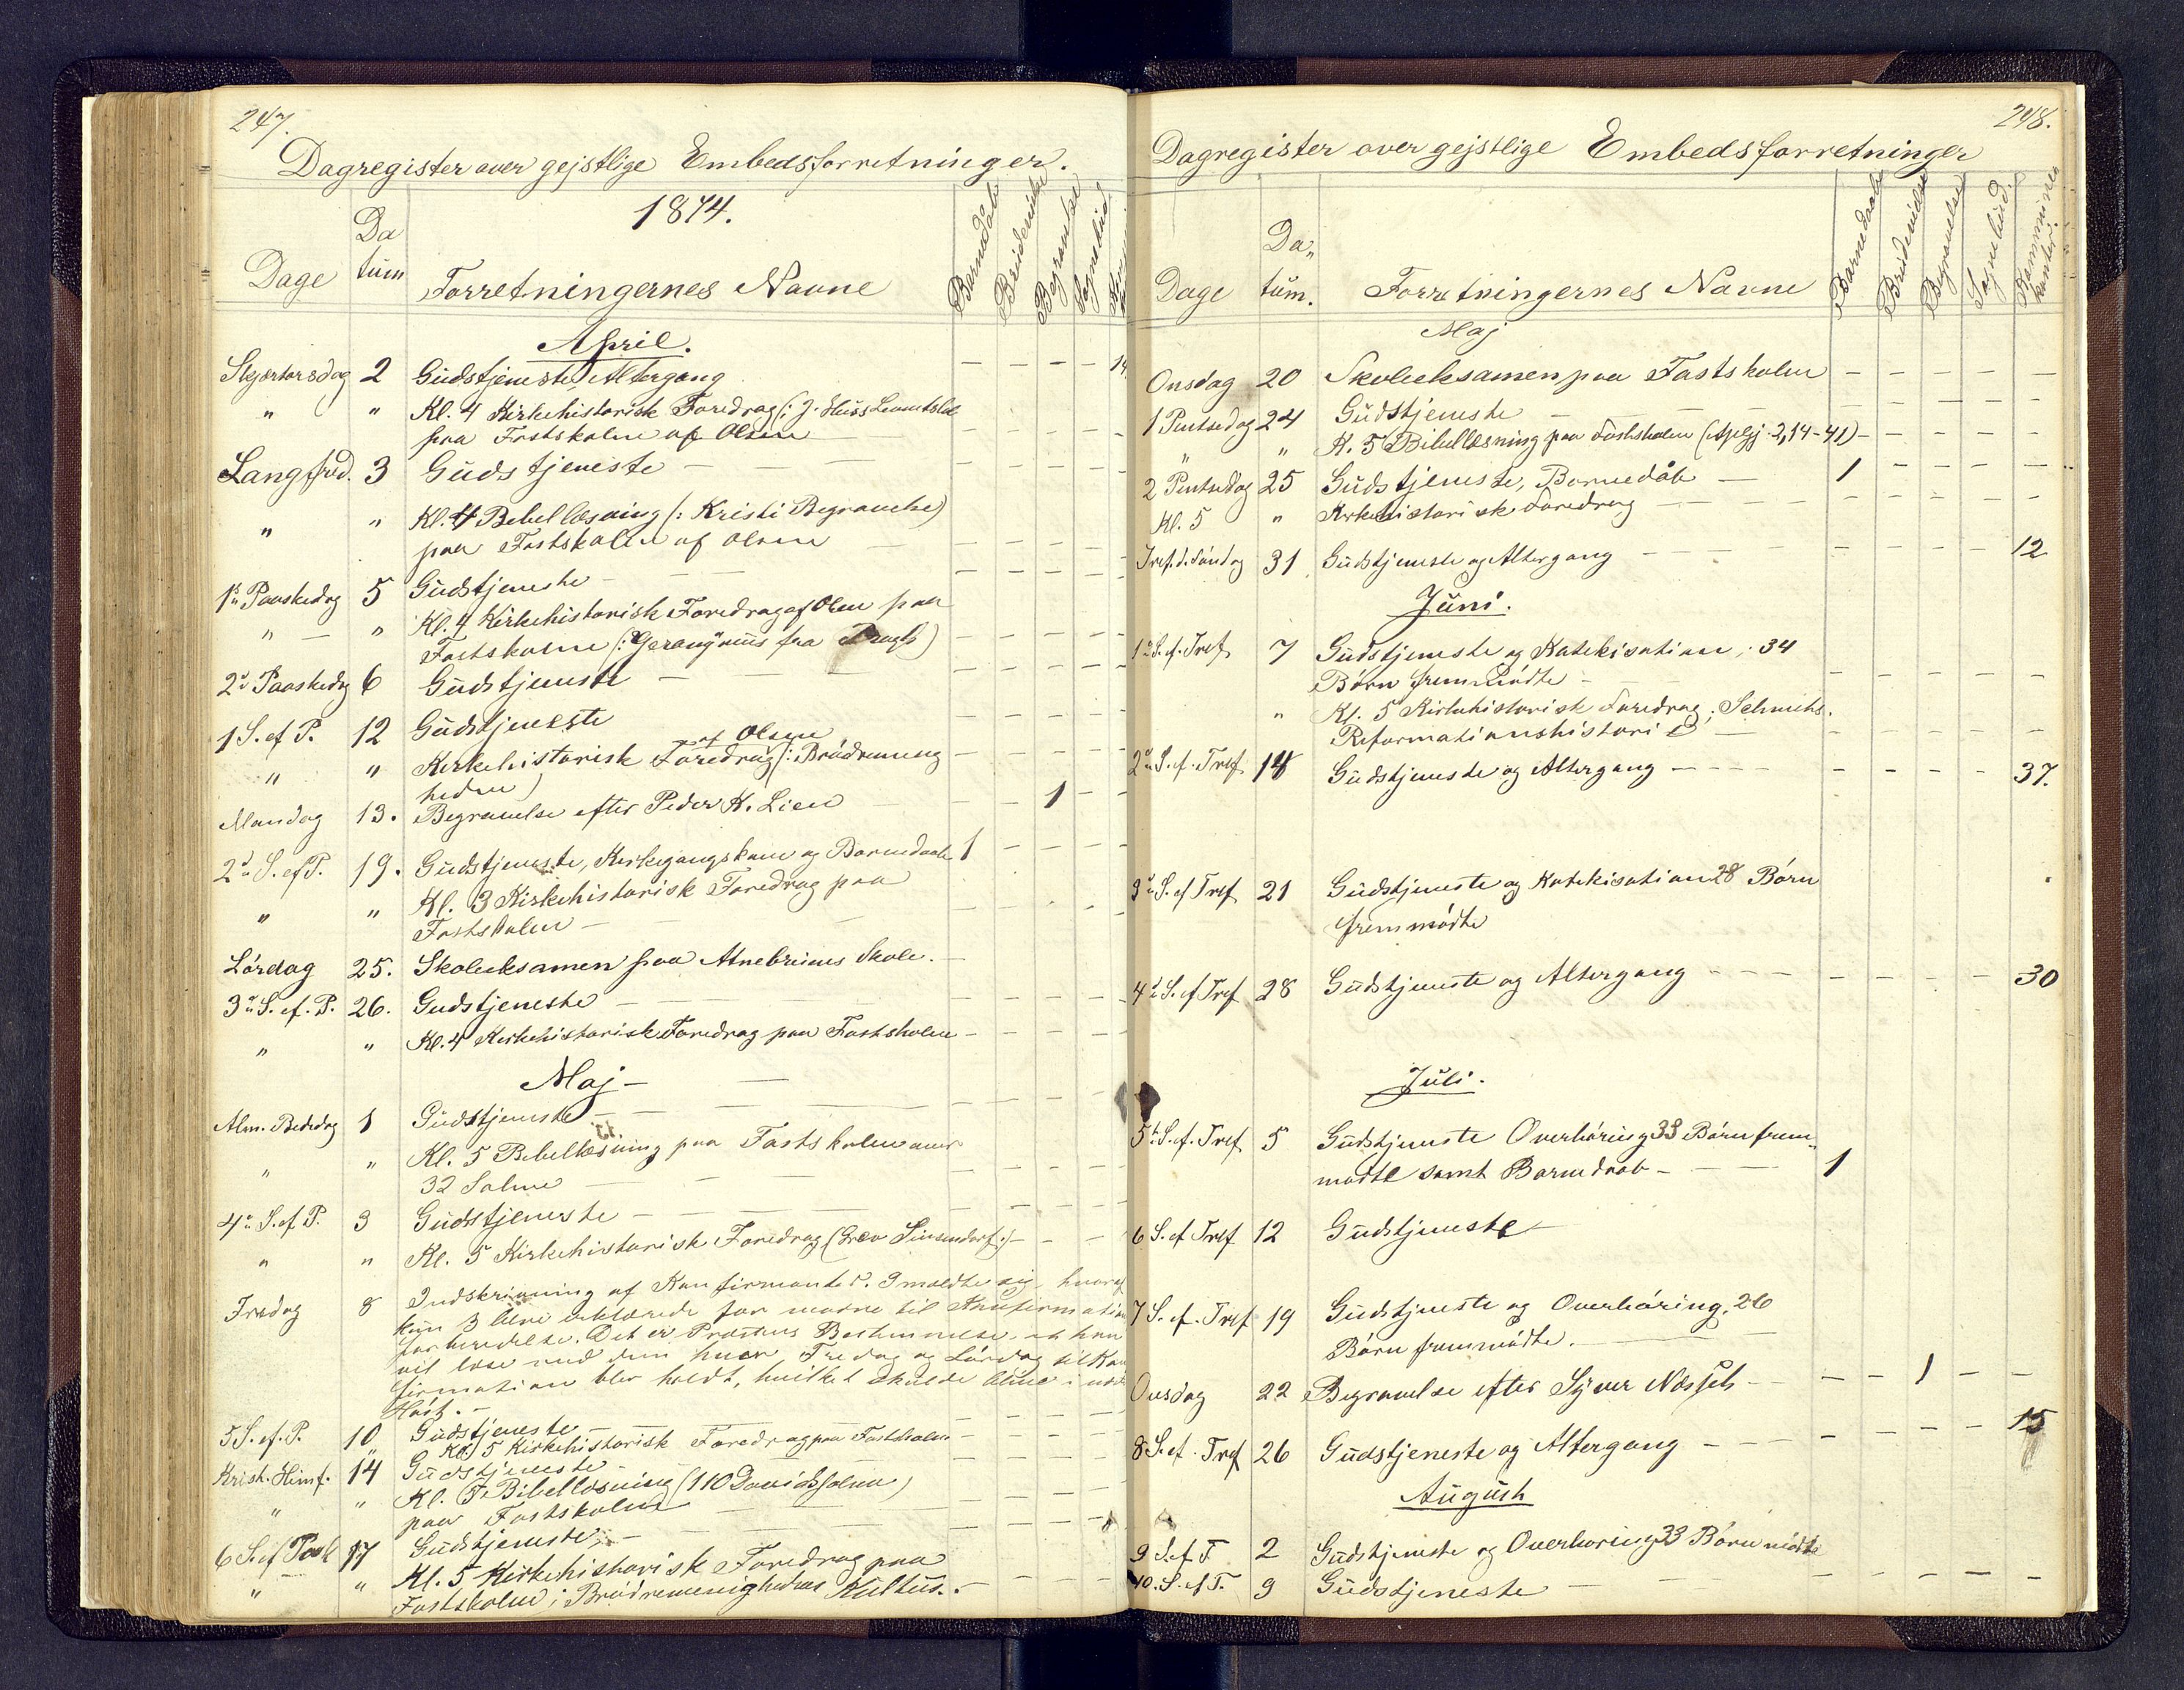 247.
Dagregister over gejstlige Embedsforretninger.
1874.
Dage
Da
tum
Forretningernes Navne
Barnedåb
Brudevielse
Begravelse
Sognebud
April.
Skjærtorsdag 2 Gudstjeneste, Altergang — — — — 14
" " Kl. 4 Kirkehistorisk Foredrag (: J. Huss
paa Fastskolen af Olsen
Langfred. 3 Gudstjeneste
" " Kl. 4 Bibellæsning (: Kristi Begravelse)
paa Fastskolen af Olsen
1ste Paaskedag 5 Gudstjeneste
" — " Kl. 4 Kirkehistorisk Foredrag af Olsen paa
Fastskolen (: fra Prag)
2den Paaskedag 6 Gudstjeneste
1 S. ef P. 12 Gudstjeneste
af Olsen
" " Kirkehistorisk Foredrag (: Brødremenig
heden)
Mandag 13. Begravelse efter Peder K. Lien — — 1 —
2d S. ef P. 19. Gudstjeneste, Kirkegangskone og Barnedaab 1
" " Kl. 3 Kirkehistorisk Foredrag paa
Fastskolen
Lørdag 25. Skoleeksamen paa Atnebrüns Skole.
3d S. ef. P. 26. Gudstjeneste
" " Kl. 4 Kirkehistorisk Foredrag paa Fastskolen
Maj
Alm. Bededag 1 Gudstjeneste
" " Kl. 5 Bibellæsning paa Fastskolen over
32 Salme
4de S. ef. P. 3 Gudstjeneste
" " Kl. 5 Kirkehistorisk Foredrag (Grev Sinsendorf:)
Fredag 8 Indskrivning af Konfirmanter. 9 meldte sig, hvoraf
kun 3 bleve erklærede for modne til Konfirmations
forberedelse. Det er Præstens Bestemmelse, at han
vil læse med dem hver Fredag og Lørdag til Kon
firmation blev holdt, hvilket skulde blive i
Høst.
5 S. ef. P. 10 Gudstjeneste
" Kl. 5 Kirkehistorisk Foredrag paa Fastskolen
Krist. Himf. 14 Gudstjeneste
" " Kl. 5 Bibellæsning (110 Davids Salme)
paa Fastskolen
6 S. ef Paas 17 Gudstjeneste,
" " Kl. 5 Kirkehistorisk Foredrag paa
Fastskolen; Brødremenighedens Kultus.
248.
Dagregister over gejstlige Embedsforretninger
Dage
Da-
tum.
Forretningernes Navne
Barnedaab
Brudevielse
Begravelse
Sognebud.
Kommuni-
kanter.
Maj
Onsdag 20 Skoleeksamen paa Fastskolen
1 Pintsedag 24 Gudstjeneste
" " K. 5 Bibellæsning paa Fastskolen (Aplgj. 2, 14-41)
2 Pintsedag 25 Gudstjeneste, Barnedåb — 1
Kl. 5 " Kirkehistorisk Foredrag
Tref. d. Søndag 31 Gudstjeneste og Altergang 12
Juni.
1ste S. ef. Tref. 7 Gudstjeneste og Katekisation, 34
Børn fremmødte
" Kl. 5 Kirkehistorisk Foredrag;
Reformationshistori
2den S. ef. Tref. 14 Gudstjeneste og Altergang 37.
3die S. ef Tref 21 Gudstjeneste og Katekisation 28 Børn
fremmødte
4de S. ef Tref 28 Gudstjeneste og Altergang 30
Juli.
5te S. ef. Tref 5 Gudstjeneste Overhøring 33 Børn frem-
mødte samt Barnedaab 1
6 S. ef Tref 12 Gudstjeneste
7 S. ef. Tref 19 Gudstjeneste og Overhøring, 26
Børn fremmødte.
Onsdag 22 Begravelse efter Syver 1
8 S. ef. Tref 26 Gudstjeneste og Altergang 15
August
9 S. ef T 2 Gudstjeneste og Overhøring 33 Børn mødte
10. S. ef T. 9 Gudstjeneste